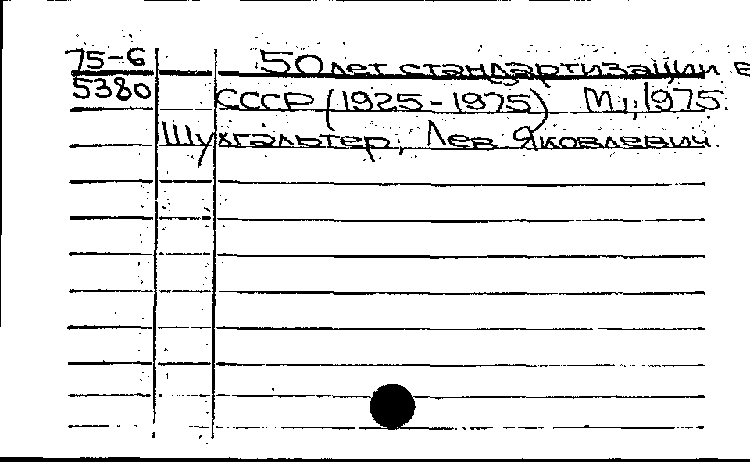 75-6 50 лет стандартизации в
5380 СССР (1925-1975) М., 1975.
Шухгальтер, Лев Яковлевич.